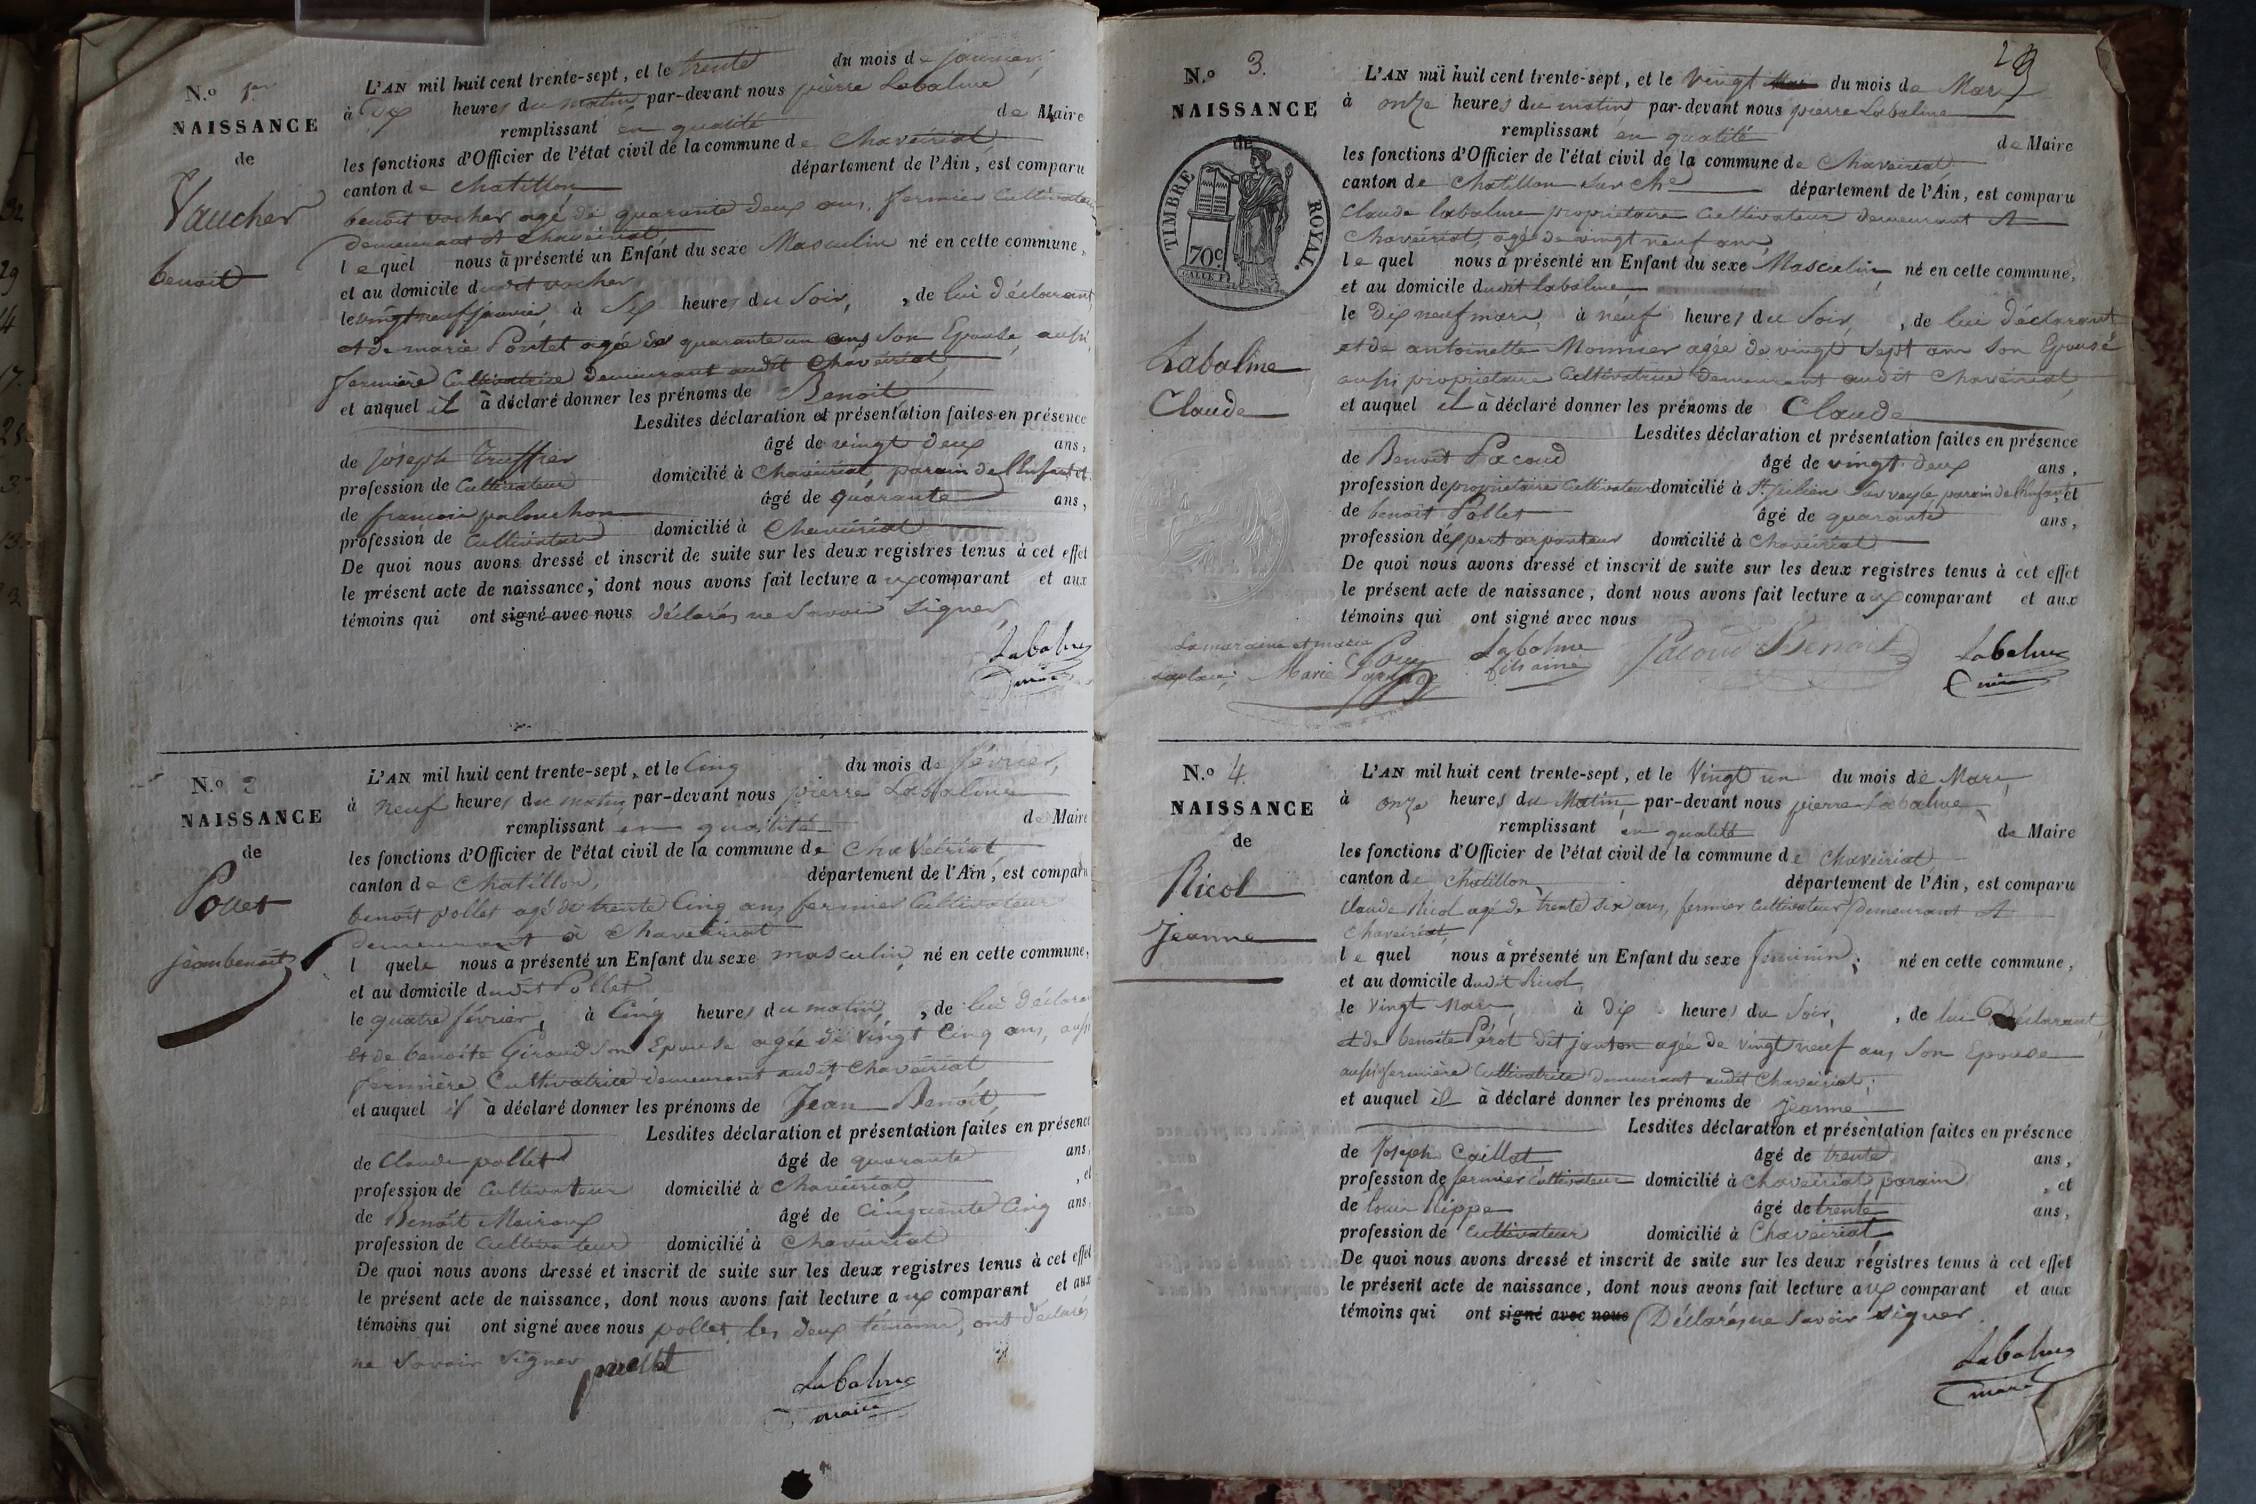 N.o 1er
NAISSANCE
de
Vaucher
benoit
L'AN mil huit cent trente-sept, et le trente du mois de janvier,
à dix heures du matin, par-devant nous pierre Labalme
remplissant en qualité de Maire
les fonctions d'Officier de l'état civil de la commune de Chaveiriat,
canton de Chatillon département de l'Ain, est comparu
benoit vocher agé de quarante deux ans, fermier Cultivateur
demeurant A Chaveiriat,
le quel nous à présenté un Enfant du sexe Masculin né en cette commune,
et au domicile dudit vocher
le vingt neuf janvier, à Six heures du Soir, , de lui déclarant
et de marie Pontet agée de quarante un ans Son Epouse, aussi
fermière Cultivatrice demeurant audit Chaveiriat,
et auquel il à déclaré donner les prénoms de Benoit
Lesdites déclaration et présentation faites en présence
de joseph truffier âgé de vingt deux ans,
profession de Cultivateur domicilié à Chaveiriat, parain de l'Enfant et
de francois palouchon âgé de quarante ans,
profession de Cultivateur domicilié à Chaveiriat
De quoi nous avons dressé et inscrit de suite sur les deux registres tenus à cet effet
le présent acte de naissance, dont nous avons fait lecture aux comparant et aux
témoins qui ont signé avec nous déclarés ne Savoir Signer
Labalme
maire
N.o 2
NAISSANCE
de
Pollet
jean benoit
L'AN mil huit cent trente-sept, et le Cinq du mois de février,
à neuf heures du matin, par-devant nous pierre Labalme
remplissant en qualité de Maire
les fonctions d'Officier de l'état civil de la commune de Chaveiriat
canton de Chatillon, département de l'Ain, est comparu
benoit pollet agé de trente Cinq ans fermier Cultivateur
demeurant à Chaveiriat
l quele nous a présenté un Enfant du sexe masculin né en cette commune,
et au domicile dudit Pollet
le quatre février, à Cinq heures du matin, , de lui déclara
et de benoite Giraud Son Epouse agée de vingt Cinq ans, aussi
fermière Cultivatrice demeurant audit Chaveiriat
et auquel il à déclaré donner les prénoms de Jean Benoit,
Lesdites déclaration et présentation faites en présence
de Claude pollet âgé de quarante ans,
profession de Cultivateur domicilié à Chaveiriat , et
de Benoit Moiroux âgé de Cinquante Cinq ans
profession de Cultivateur domicilié à Chaveiriat
De quoi nous avons dressé et inscrit de suite sur les deux registres tenus à cet effet
le présent acte de naissance, dont nous avons fait lecture aux comparant et aux
témoins qui ont signé avec nous pollet, les deux témoins, ont déclarés
ne Savoir Signer pollet
Labalme
maire
N.o 3.
NAISSANCE
de
TIMBRE ROYAL.
70c
Labalme
Claude
L'AN mil huit cent trente-sept, et le vingt du mois de Mars
à onze heures du matin par-devant nous pierre Labalme
remplissant en qualité de Maire
les fonctions d'Officier de l'état civil de la commune de Chaveiriat,
canton de Chatillon sur Che département de l'Ain, est comparu
Claude labalme propriétaire Cultivateur demeurant A
Chaveiriat, agé de vingt neuf ans,
le quel nous à présenté un Enfant du sexe Masculin, né en cette commune,
et au domicile dudit labalme,
le Dix neuf mars, à neuf heures du Soir, , de lui déclarant
et de antoinette Monnier agée de vingt Sept ans Son Epouse
aussi propriétaire Cultivatrice demeurant audit Chaveiriat,
et auquel il à déclaré donner les prénoms de Claude
Lesdites déclaration et présentation faites en présence
de Benoit Pacoud âgé de vingt deux ans,
profession de propriétaire Cultivateur domicilié à St. julien Sur veyle parain de l'Enfant, et
de benoit Pollet âgé de quarante ans,
profession d'Expert arpenteur domicilié à Chaveiriat
De quoi nous avons dressé et inscrit de suite sur les deux registres tenus à cet effet
le présent acte de naissance, dont nous avons fait lecture aux comparant et aux
témoins qui ont signé avec nous
La maraine et marie
Marie
Labalme
fils ainé
Pacoud Benoit
Labalme
maire
N.o 4.
NAISSANCE
de
Ricol
Jeanne
L'AN mil huit cent trente-sept, et le Vingt un du mois de Mars,
à onze heures du Matin, par-devant nous pierre Labalme
remplissant en qualité de Maire
les fonctions d'Officier de l'état civil de la commune de Chaveiriat
canton de Chatillon département de l'Ain, est comparu
Claude Ricol agé de trente Six ans, fermier Cultivateur demeurant A
Chaveiriat,
le quel nous à présenté un Enfant du sexe feminin; né en cette commune,
et au domicile dudit Ricol
le Vingt Mars, à dix heures du Soir, , de lui Déclarant
et de benoite Pérot dit janton agée de vingt neuf ans Son Epouse
aussi fermière Cultivatrice demeurant audit Chaveiriat;
et auquel il à déclaré donner les prénoms de jeanne
Lesdites déclaration et présentation faites en présence
de Joseph Caillat âgé de trente ans,
profession de fermier Cultivateur domicilié à Chaveiriat parain , et
de louis Rippe âgé de trente ans,
profession de Cultivateur domicilié à Chaveiriat
De quoi nous avons dressé et inscrit de suite sur les deux régistres tenus à cet effet
le présent acte de naissance, dont nous avons fait lecture aux comparant et aux
témoins qui ont signé avec nous Déclarés ne Savoir Signer
Labalme
maire